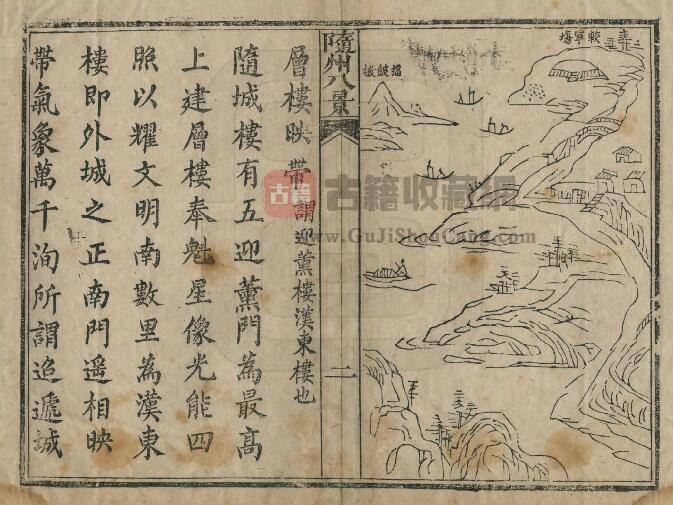 隨州八景
二
層樓映帶 謂迎薰樓漢東樓也
隨城樓有五迎薰門為最高
上建層樓奉魁星像光能四
照以耀文明南數里為漢東
樓即外城之正南門遥相映
帶氣象萬千洵所謂迢遞城
古籍
古籍收藏網
www.GuJiShouCang.com